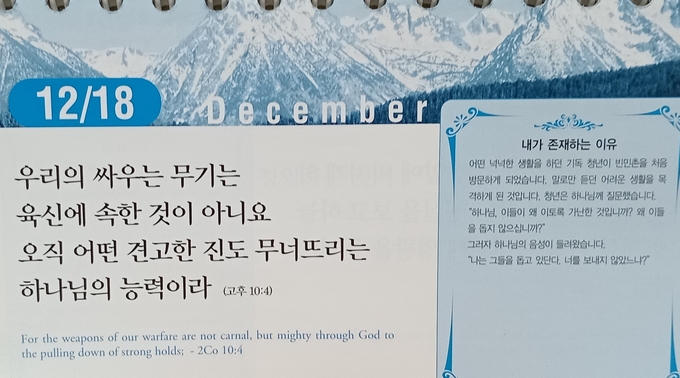 12/18
December
우리의 싸우는 무기는
육신에 속한 것이 아니요
오직 어떤 견고한 진도 무너뜨리는
하나님의 능력이라 (고후 10:4)
For the weapons of our warfare are not carnal, but mighty through God to
the pulling down of strong holds; - 2Co 10:4
내가 존재하는 이유
어떤 넉넉한 생활을 하던 기독 청년이 빈민촌을 처음
방문하게 되었습니다. 말로만 듣던 어려운 생활을 목
격하게 된 것입니다. 청년은 하나님께 질문했습니다.
"하나님, 이들이 왜 이토록 가난한 것입니까? 왜 이들
을 돕지 않으십니까?"
그러자 하나님의 음성이 들려왔습니다.
"나는 그들을 돕고 있단다. 너를 보내지 않았느냐?"